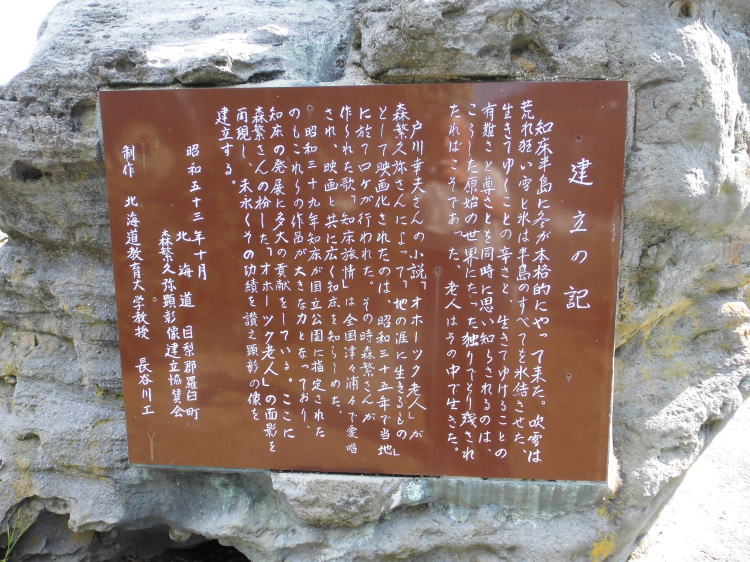 建立の記
知床半島に冬が本格的にやって来た。吹雪は
荒れ狂い雪と氷は半島のすべてを氷結させた、
生きてゆくことの辛さと、生きてゆけることの
有難さと尊さとを同時に思い知らされるのは、
こうした原始の世界にたった独りでとり残され
たればこそであった、老人はその中で生きた。
戸川幸夫さんの小説「オホーツク老人」が
森繁久弥さんによって、「地の涯に生きるもの」
として映画化されたのは、昭和三十五年で当地
に於てロケが行われた。その時森繁さんが
作られた歌「知床旅情」は全国津々浦々で愛唱
され、映画と共に広く知床を知らしめた、
昭和三十九年知床が国立公園に指定された
のもこれらの作品が大きな力となっており、
知床の発展に多大の貢献をしている。ここに
森繁さんの扮した「オホーツク老人」の面影を
再現し、末永くその功績を讃え顕彰の像を
建立する。
昭和五十三年十月
北海道目梨郡羅臼町
森繁久弥顕彰像建立協賛会
制作 北海道教育大学教授 長谷川工